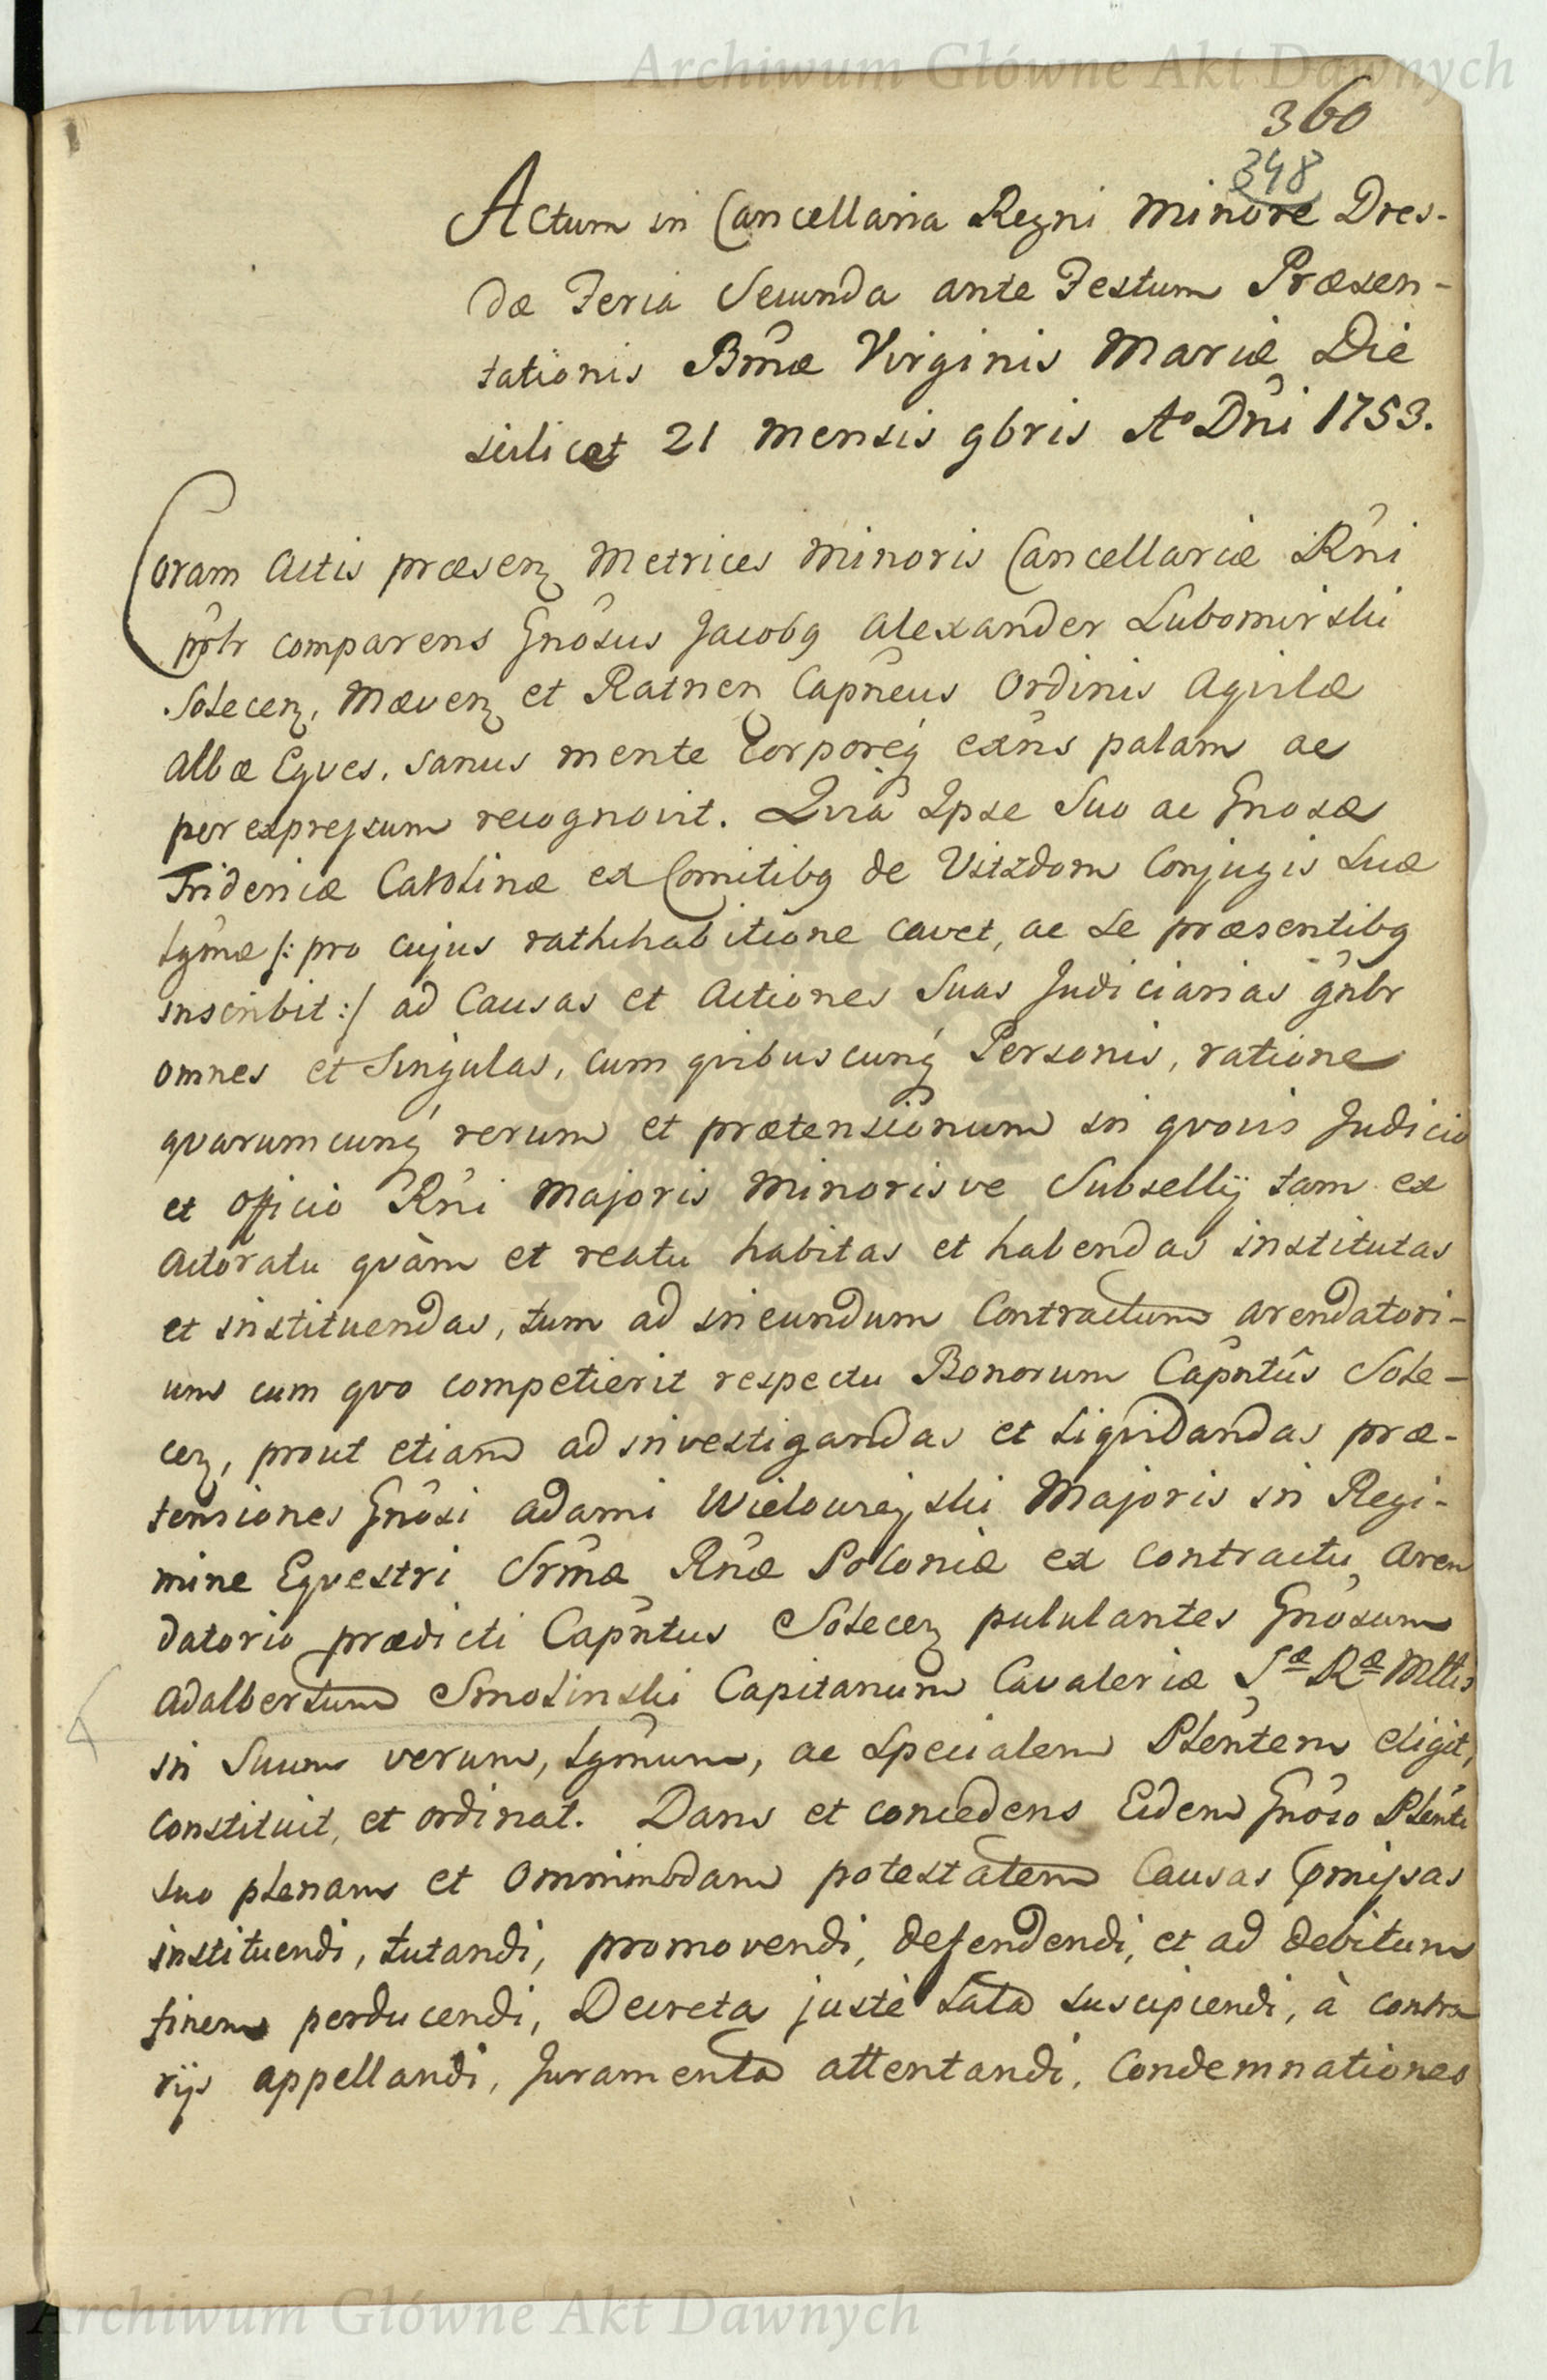 Archiwum Główne Akt Dawnych
360
348
Actum in Cancellaria Regni Minore Dres-
dæ Feria Secunda ante Festum Præsen-
tationis Bmæ Virginis Mariæ Die
scilicet 21 Mensis 9bris Ao Dni 1753.
Coram Actis præsenz Metrices Minoris Cancellariæ Rni
pnlr comparens Gnosus Jacobg Alexander Lubomirski
Solecenz, Mæven̨z et Ratnenz Capneus Ordinis Aqvilæ
Albæ Eqves, sanus mente Corporeq exns palam ac
per expressum recognovit. Qvia Ipse Suo ac Gnosæ
Fridericæ Carolinæ ex Comitibg de Vitzdom Conjugis Suæ
Lgmæ /: pro cujus rathihabitione cavet, ac se præsentibg
inscribit :/ ad Causas et Actiones Suas Judiciarias gnlr
omnes et Singulas, cum qvibuscunq Personis, ratione
qvarumcunq rerum et prætensionum in qvovis Judicio
et officio Rni Majoris Minorisve Subsellij tam ex
Actoratu qvàm et reatu habitas et habendas institutas
et instituendas, tum ad ineundum Contractum arendatori-
um cum qvo competierit respectu Bonorum Capntûs Sole-
cenz, prout etiam ad investigandas et liqvidandas præ-
tensiones Gnosi Adami Wielowieyski Majoris in Regi-
mine Eqvestri Srmæ Rnæ Poloniæ ex Contractu Aren
datorio prædicti Capntus Solecenz pululantes Gnosum
Adalbertum Smolinski Capitanum Cavaleriæ Sæ Ræ Mttis
in Suum verum, Lgmum, ac Specialem Plentem eligit,
constituit, et ordinat. Dans et concedens Eidem Gnoso Plenti
suo plenam et omnimodam potestatem Causas pmissas
instituendi, tutandi, promovendi, defendendi, et ad debitum
finem perducendi, Decreta justè lata suscipiendi, à contra
rijs appellandi, Juramenta attentandi, Condemnationes
Archiwum Główne Akt Dawnych